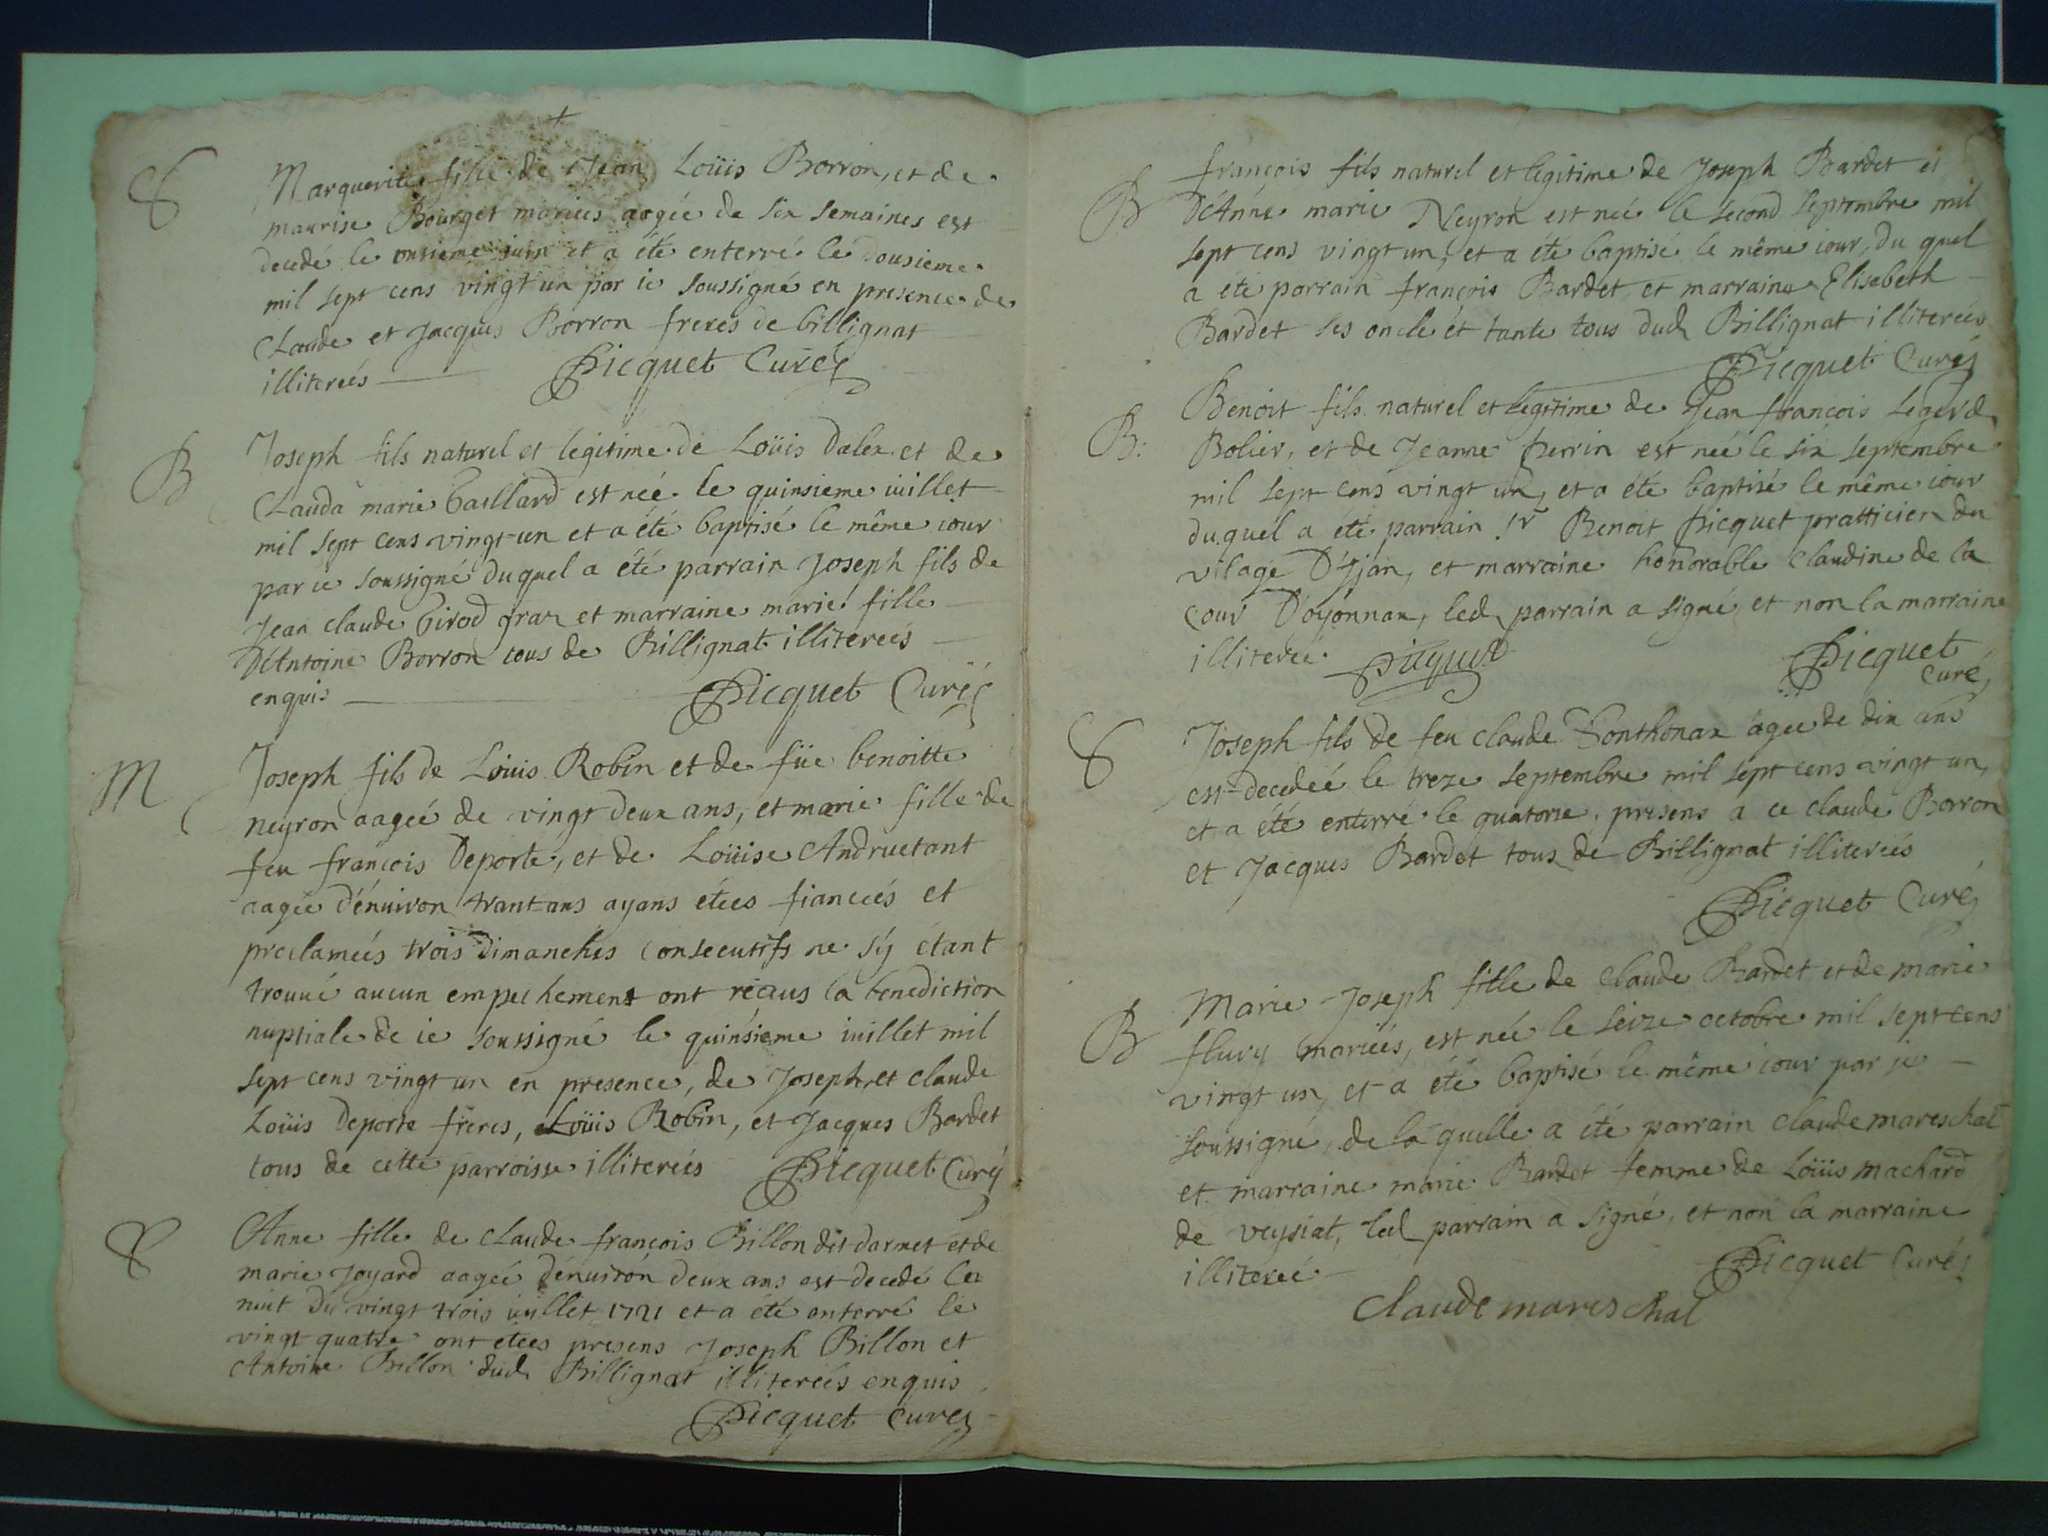 S
Marguerite fille de Jean Loüis Borron, et de
maurise Bourget mariés aagée de six semaines est
decedé le onsieme juin et a été enterré le dousieme
mil sept cens vingt un par ie soussigné en presence de
Claude et Jacques Borron freres de billignat
illitereés Picquet Curé
B
Joseph fils naturel et legitime de Loüis Dalex et de
Clauda marie Gaillard est neé le quinsieme iuillet
mil sept cens vingt-un et a été baptisé le même iour
par ie soussigné duquel a été parrain Joseph fils de
Jean claude Girod et marraine marie fille
D'Antoine Borron tous de Billignat illitereés
enquis Picquet Curé
M
Joseph fils de Louis Robin et de füe benoitte
neyron aageé de vingt deux ans, et marie fille de
feu françois Deporte, et de Loüise Andruetant
aagée d'énuiron trant ans ayans etees fianceés et
proclameés trois Dimanches consecutifs ne s'y étant
trouué aucun empechement ont réçus la benediction
nuptiale de ie soussigné le quinsieme iuillet mil
sept cens vingt un en presence, de Joseph, et claude
Loüis Deporte freres, Loüis Robin, et Jacques Bardet
tous de cette parroisse illitereés Picquet Curé
S
Anne fille de Claude françois Billon dit darmet et de
marie Joyard aageé d'enuiron deux ans est decedé la
nuit du vingt trois iuillet 1721 et a été enterré le
vingt quatre ont etees presens Joseph Billon et
Antoine Billon dud Billignat illitereés enquis
Picquet Curé
B
françois fils naturel et legitime de Joseph Bardet et
D'Anne marie Neyron est neé le second septembre mil
sept cens vingt un, et a été baptisé le même iour, du quel
a été parrain françois Bardet et marraine Elisabeth
Bardet ses oncle et tante tous dud Billignat illitereés
Picquet Curé
B:
Benoit fils naturel et legitime de Jean françois
Bolier, et de Jeanne Perrin est neé le six septembre
mil sept cens vingt un, et a été baptisé le même iour
duquel a été parrain Sr Benoit Picquet pratticien du
vilage D'Ijan, et marraine honorable Claudine de la
cour D'oyonnax, led parrain a signé et non la marraine
illitereé Picquet Picquet
Curé
S
Joseph fils de feu claude Sonthonax ageé de dix ans
est decedeé le treze septembre mil sept cens vingt un,
et a été enterré le quatorze, presens a ce claude Borron
et Jacques Bardet tous de Billignat illitereés
Picquet Curé
B
Marie-Joseph fille de Claude Bardet et de marie
flury marieés, est née le seize octobre mil sept cens
vingt un, et a été baptisé le même iour par je
soussigné, de la quelle a été parrain claude mareschal
et marraine marie Bardet femme de Loüis machard
de veysiat, led parrain a signé, et non la marraine
illitereé Picquet Curé
claude mareschal